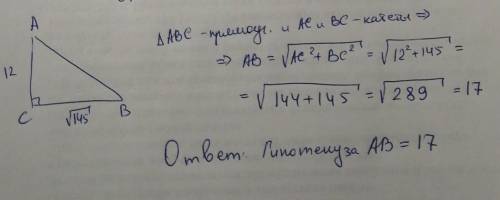 A
12
C
√145
B
△ABC - прямоуг. и AC и BC - катеты ⇒
⇒ AB = √AC² + BC² = √12² + 145 =
= √144 + 145 = √289 = 17
Ответ: Гипотенуза AB = 17